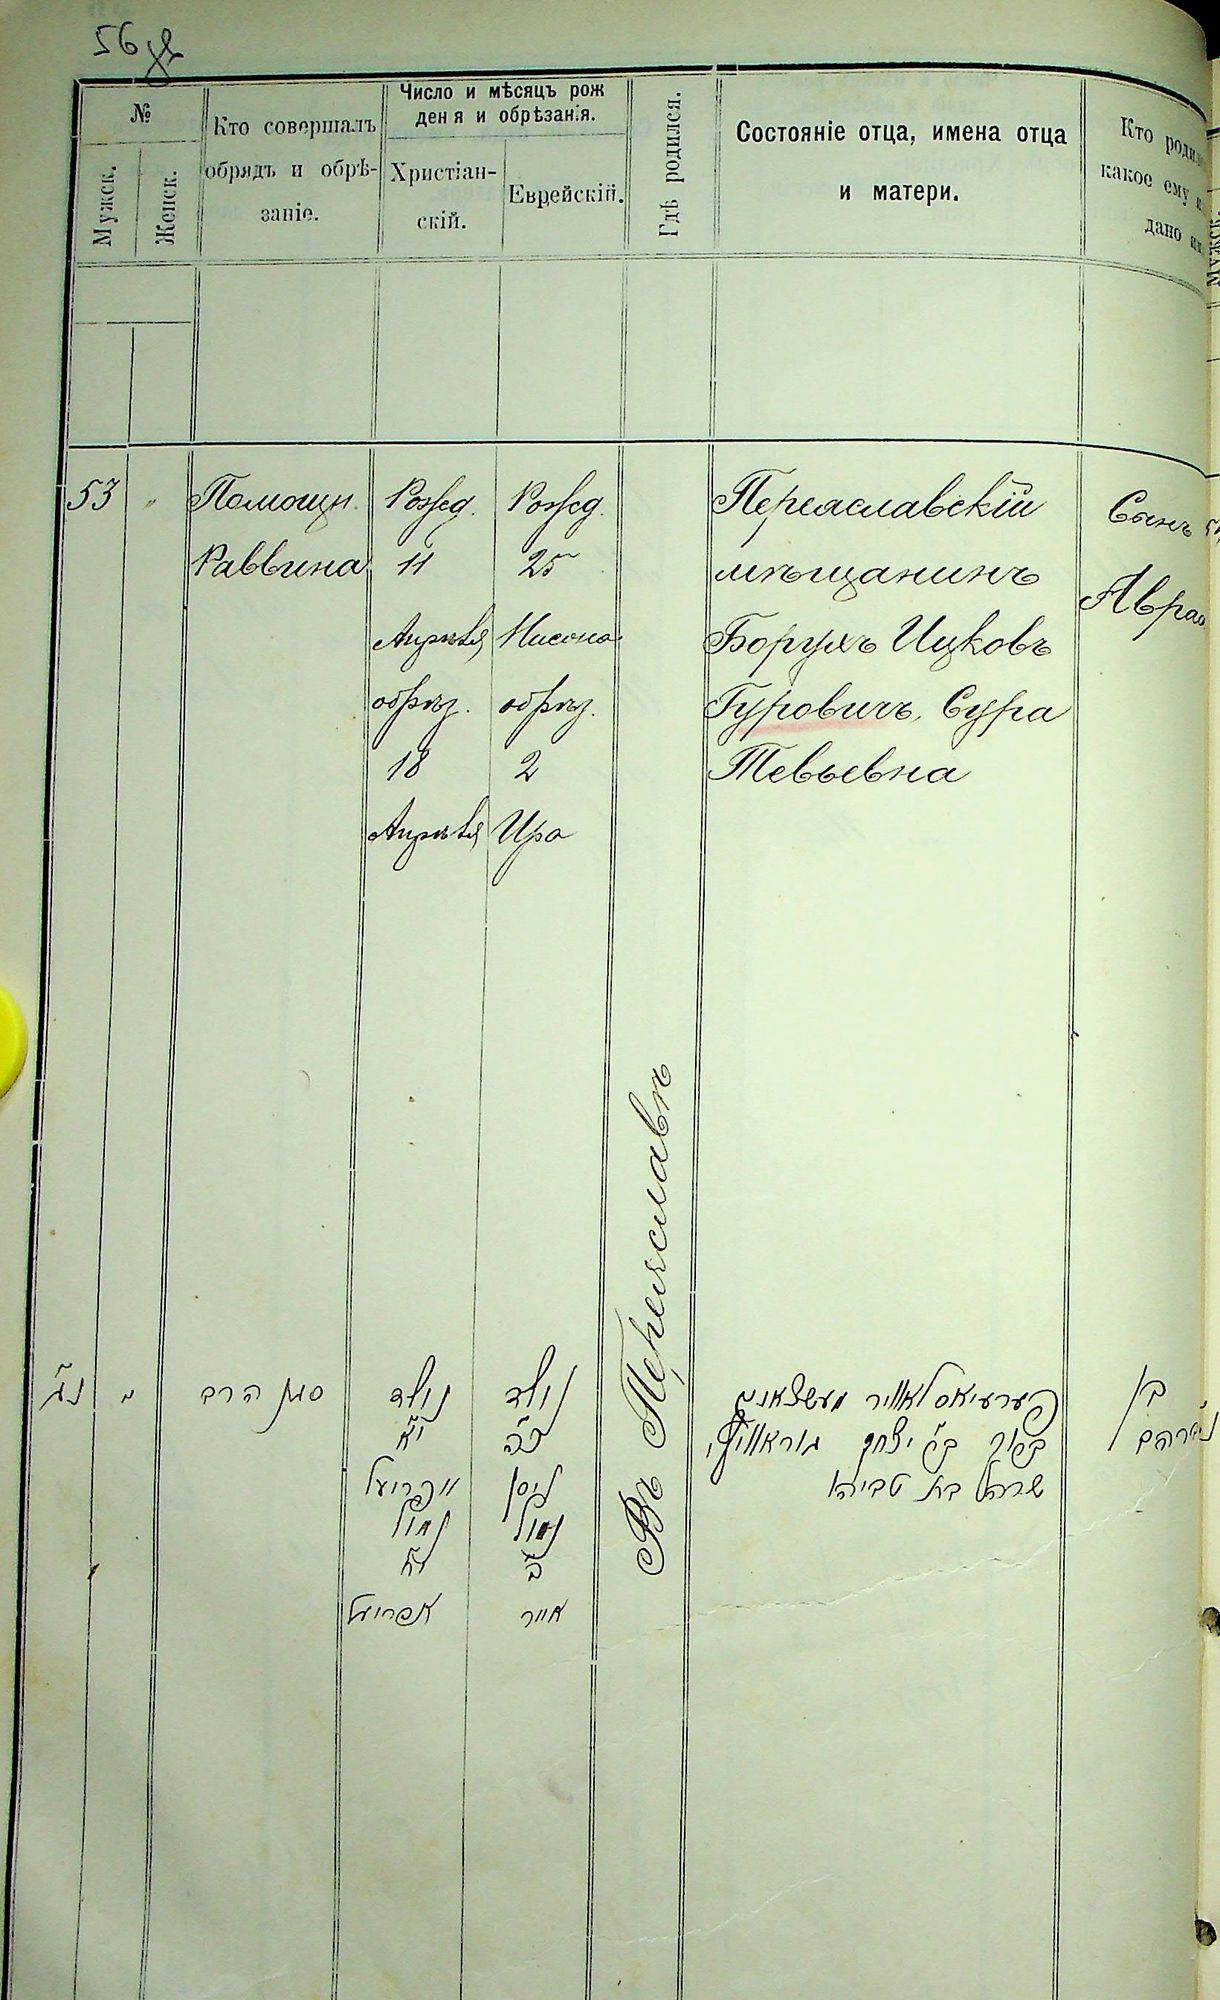 56
№
Мужск.
Женск.
Кто совершалъ
обрядъ и обрѣ-
заніе.
Число и мѣсяцъ рож
ден я и обрѣзанія.
Христіан-
скій.
Еврейскій.
Гдѣ родился.
Состояніе отца, имена отца
и матери.
Кто
какое ему
дано
53
"
Помощн.
Раввина
Рожд.
11
Апрѣля
обрѣз.
18
Апрѣля
Рожд.
25
Нисона
обрѣз.
2
Ира
Въ Переяславѣ
Переяславскій
мѣщанинъ
Борухъ Ицковъ
Гуровичъ, Сура
Тевьевна
Сынъ
Авраа
נ"ג
"
סגן הרב
נולד
י"א
אפריעל
נמול
י"ח
אפריעל
נולד
כ"ה
ניסן
נמול
ב'
אייר
פערעיאסלאוויר מעשצאנין
ברוך בר יצחק גוראוויץ,
שרה בת טביה
בן
אברהם